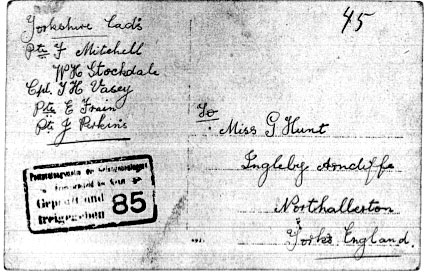 45
Yorkshire Lads
Pte F Mitchell
W H Stockdale
Cpl. T H Vasey
Pte E Train
Pte J Perkins
To
Miss G Hunt
Ingleby Arncliffe
Northallerton
Yorks. England.
Geprüft und
freigegeben
85